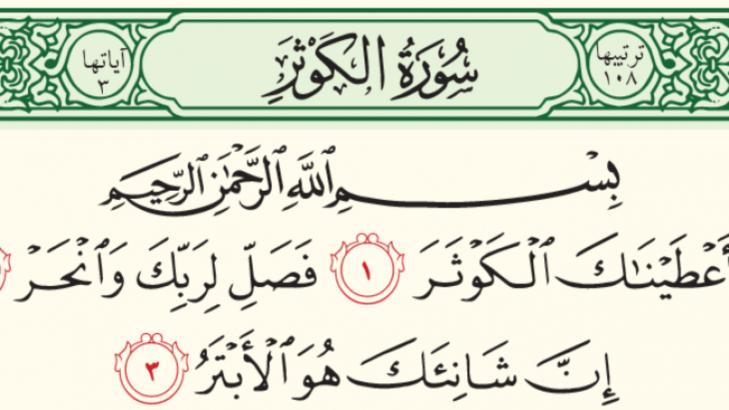 ترتيبها ١٠٨ سُورَةُ الكَوْثَرِ آياتها ٣
بِسْمِ ٱللَّهِ ٱلرَّحْمَٰنِ ٱلرَّحِيمِ
أَعْطَيْنَٰكَ ٱلْكَوْثَرَ ١ فَصَلِّ لِرَبِّكَ وَٱنْحَرْ
إِنَّ شَانِئَكَ هُوَ ٱلْأَبْتَرُ ٣